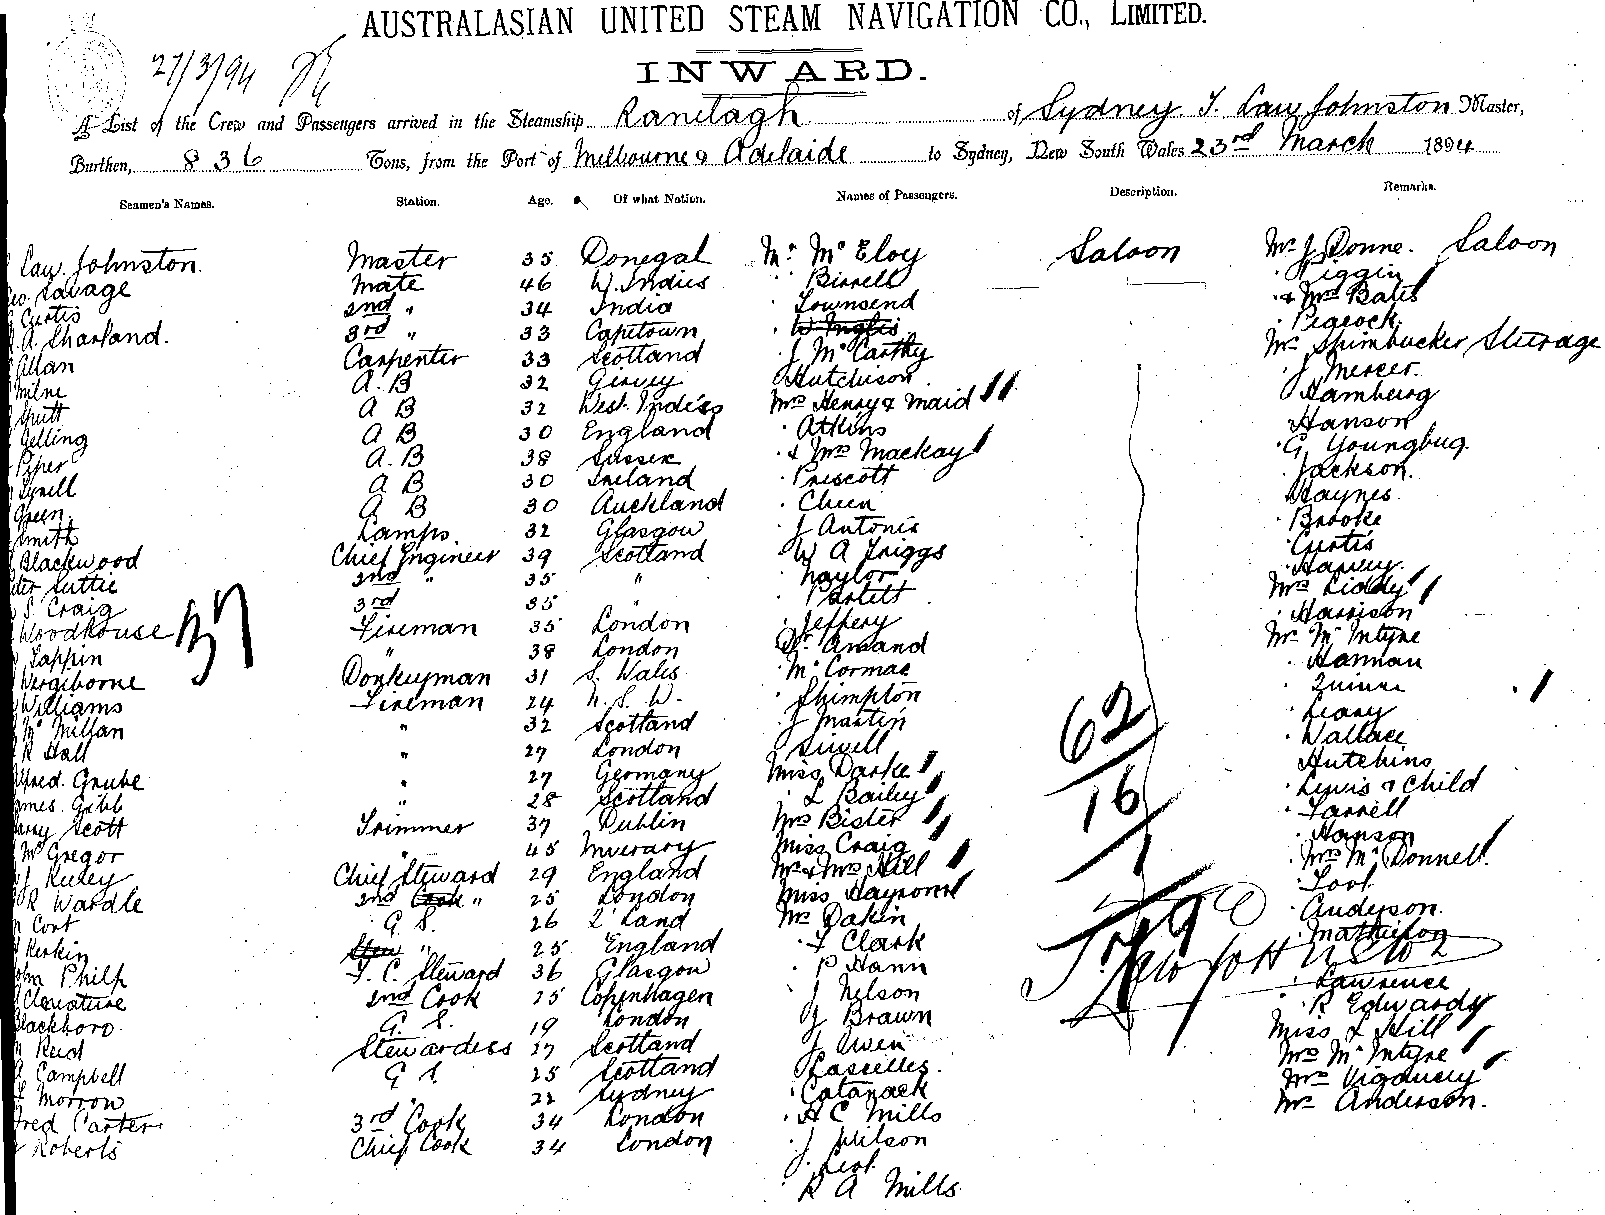 AUSTRALASIAN UNITED STEAM NAVIGATION CO., LIMITED.
27/3/94
INWARD.
A List of the Crew and Passengers arrived in the Steamship Ranelagh of Sydney T. Law Johnston Master,
Burthen, 836 Tons, from the Port of Melbourne & Adelaide to Sydney, New South Wales 23rd March 1894
Seamen's Names. Station. Age. Of what Nation. Names of Passengers. Description. Remarks.
Law Johnston. Master 35 Donegal Mr McEloy Saloon Mr J Donne. Saloon
Savage Mate 46 W. Indies " Birrell Piggin
Curtis 2nd " 34 India Townsend & Mrs Bates
A. Sharland. 3rd " 33 Capetown W Inglis Peacock
Allan Carpenter 33 Scotland J McCarthy Mr Steerage
Milne A. B 32 Hutchison J Mercer.
A B 32 West. Indies Mrs Henry & Maid Hamburg
Gelling A B 30 England Atkins Hanson
Piper A. B 38 Sussex & Mrs Mackay G
Tyrell A B 30 Ireland Priscott Jackson.
Green A B 30 Auckland Cheen Haynes
Smith Lamps. 32 Glasgow J Antonis Brooke
Blackwood Chief Engineer 39 Scotland W A Triggs Curtis
Suttie 2nd " 35 " Naylor Harvey.
S. Craig 3rd 35 " Mrs Liddy
Woodhouse Fireman 35 London Jeffery Harrison
Tappin " 38 London St Amand Mr McIntyre
Donkeyman 31 S. Wales McCormac Hannan
Williams Fireman 24 N. S. W. Shimpton Quinn
McMillan " 32 Scotland J Martin Leary
R Hall " 27 London Sewell Wallace
Alfred. Grube " 27 Germany Miss Darke Hutchins
James. Gibb " 28 Scotland L Bailey Lewis & Child
Harry Scott Trimmer 37 Dublin Mrs Bister Farrell
McGregor " 45 Inverary Miss Craig Hanson
J Chief Steward 29 England Mr & Mrs Hill Mrs McDonnell.
R Wardle 2nd Cook " 25 London Miss
Cort G. S. 26 Z'Land Mr Dakin Anderson
Stew " 25 England F Clark Mathieson
John Philp F. C. Steward 36 Glasgow P Hann Lawrence
2nd Cook 25 Copenhagen J Nelson R Edwards
Blackboro. G. S. 19 London J Brawn Miss L Hill
Reid Stewardess 27 Scotland J Owen Mrs McIntyre
Campbell G S. 25 Scotland Lascelles. Mrs
Morrow " 22 Sydney Catanack Mr Anderson.
Fred Carter 3rd Cook 34 London H C Mills
Roberts Chief Cook 34 London J Wilson
J.
R A Mills
37
62
16
1
79